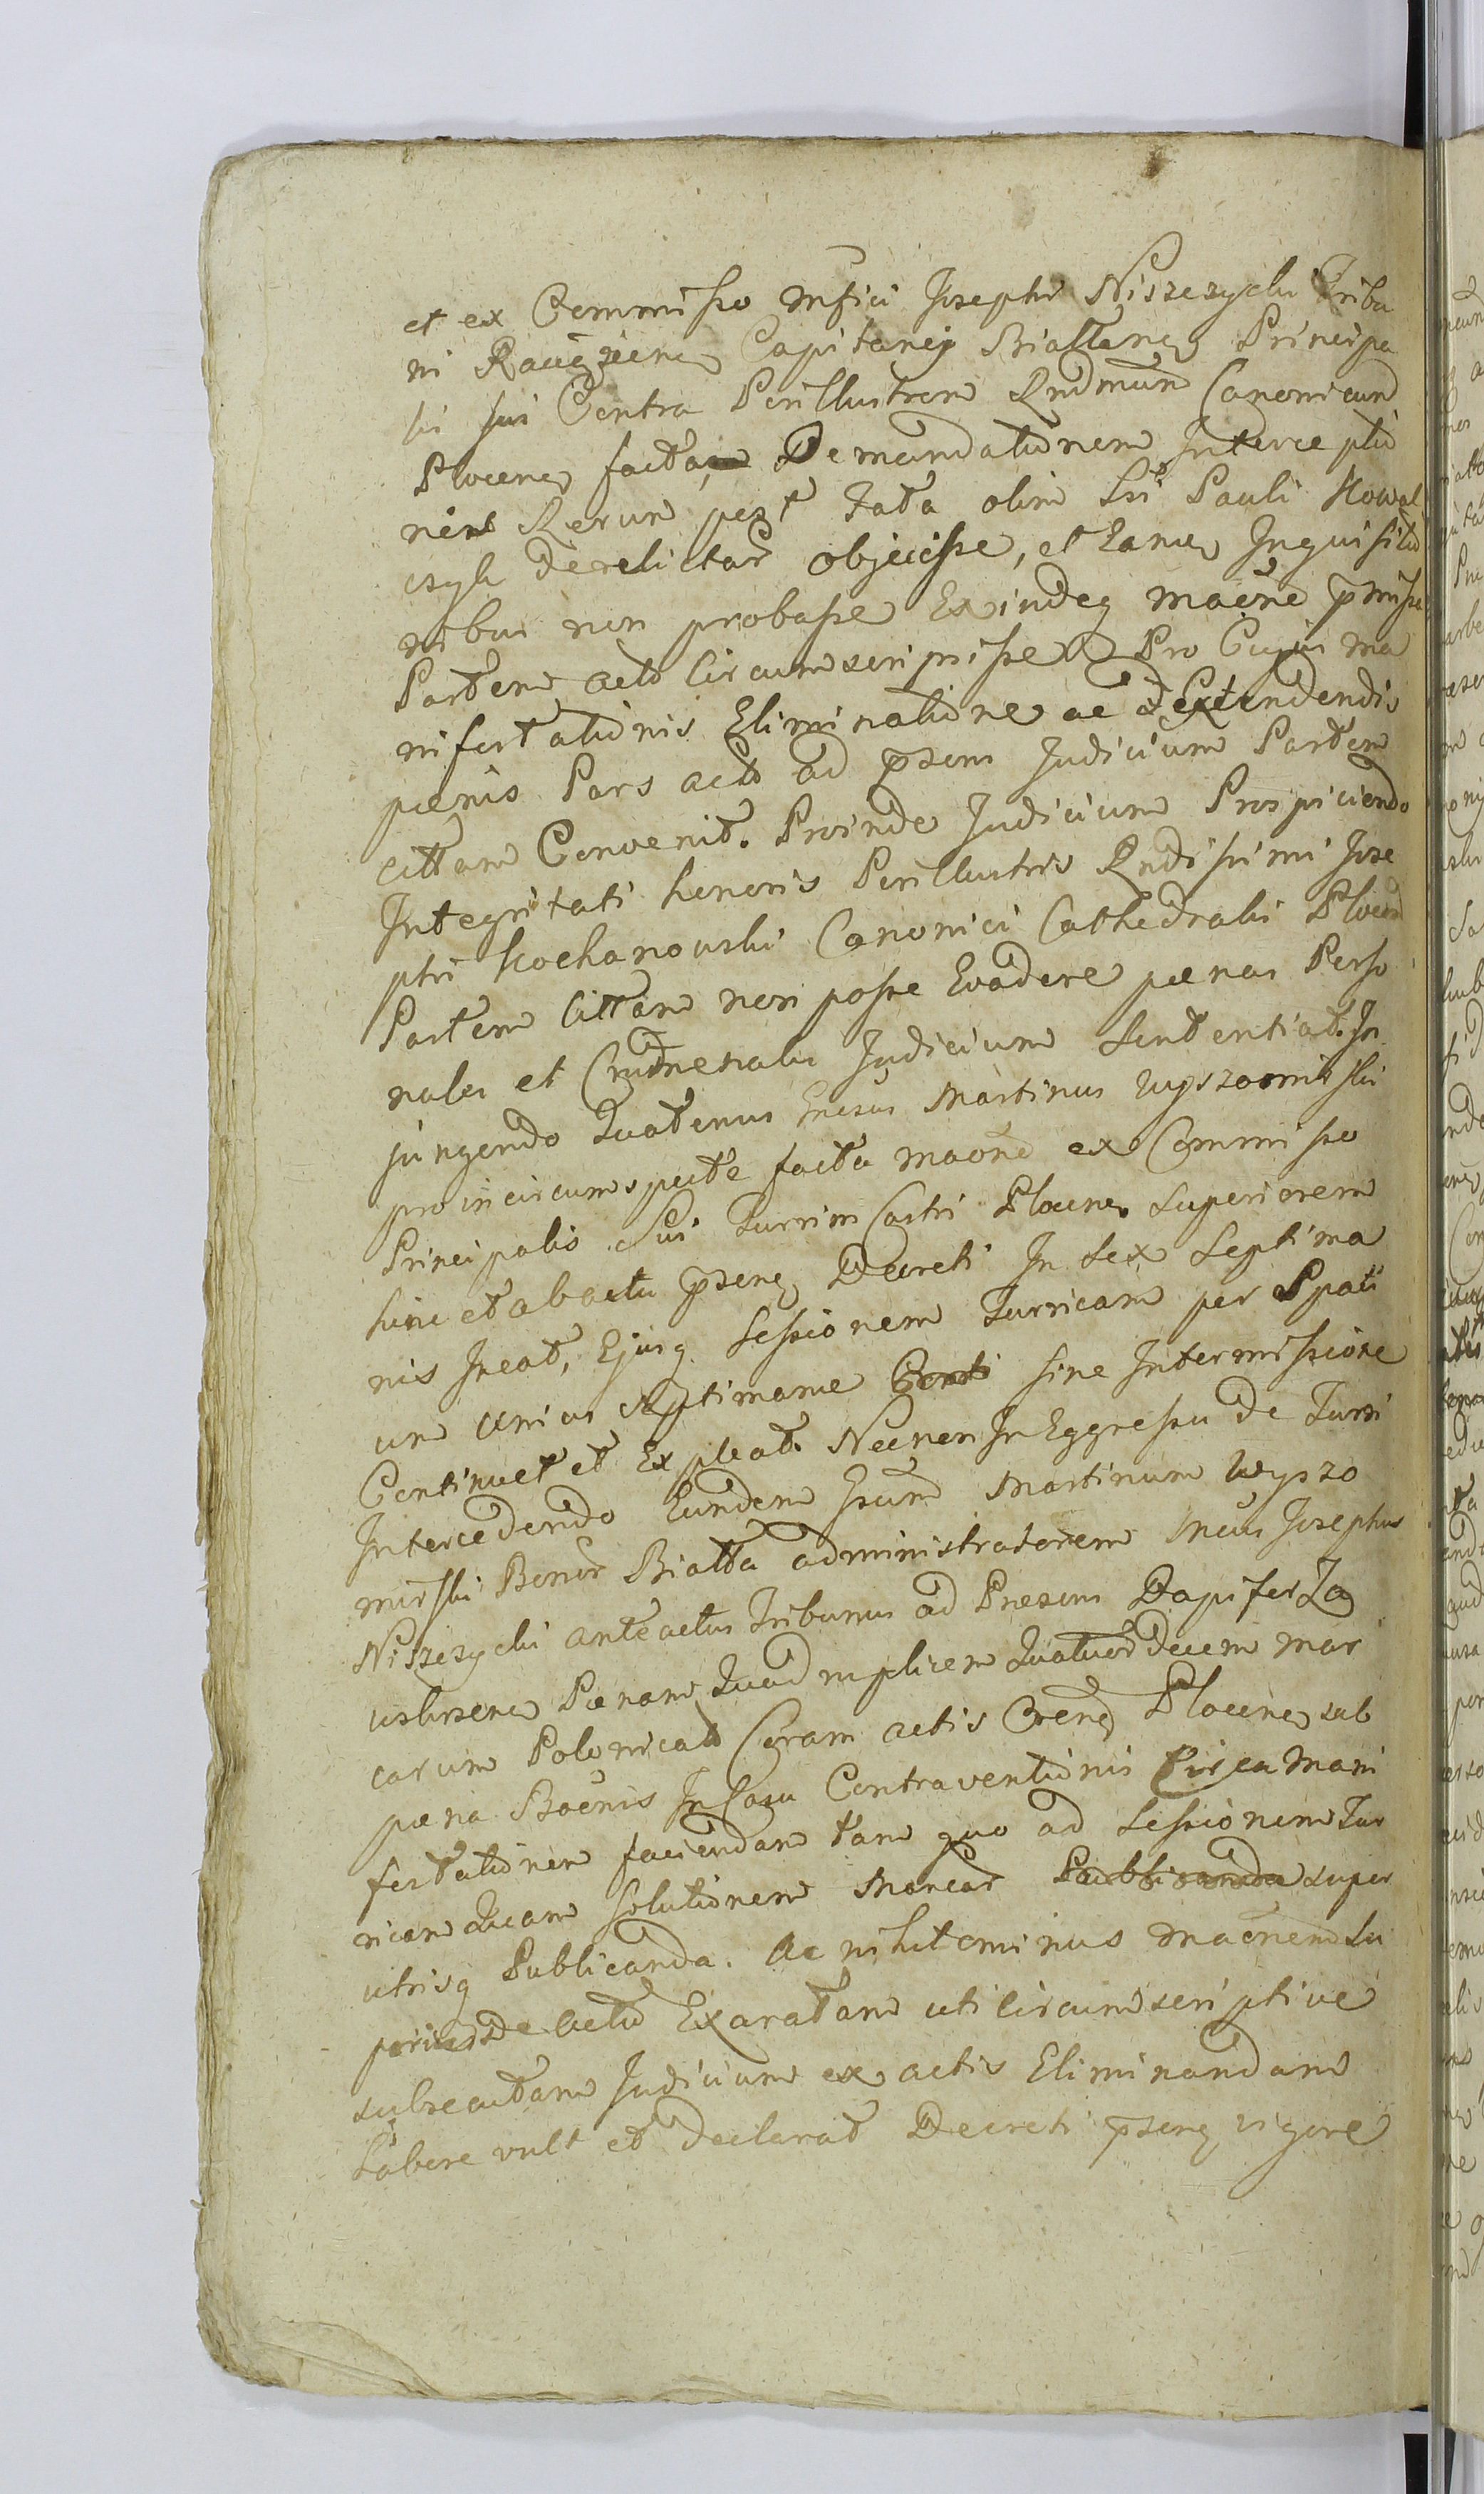 et ex Commisso Mfici Josephi Niszczycki Tribu
ni Raciązien Capitanej Białłen Principa
lis sui Contra Perillustrem Rndmum Canonicum
Plocen facta, Demandationem Interceptio
nem Rerum post Fata olim Sui Pauli Kowal
czyk Derelictar objecisse, et Eamq Inquisitio
nibus non probasse Exindeq maõne pmissa
Partem acto Circumscripsisse Pro Cujus ma
nifestationis Eliminatione ac Extendendis
pœnis Pars acto ad psens Judicium Partem
cittam Convenit. Proinde Judicium Prospiciendo
Integritati honoris Perillustris Rndissimi Jose
phi Kochanowski Canonici Cathedralis Plocen
Partem Cittam non posse Evadere pœnas Perso
nales et Judicium Sententiat. In
jungendo Quatenus Gnesus Martinus Wyszomirski
pro incircumspecte facta maõne ex Commisso
Principalis Sui Turrim Castri Plocen Superiorem
hinc et ab actu psenq Decreti In Sex Septima
nis Ineat, Ejusq Sessionem Turricam per Spati
um unius Septimanæ sine Intermissione
Continuet et Expleat. Necnon In Eggressu de Turri
Intercedendo Eundem Gsum Martinum Wyszo
mirski Bonor Białła administratorem Mcus Josephus
Niszczycki ante actus Tribunus ad Præsens Dapifer Za
wskrzen Pœnam Quadruplicem Quatuordecem mar
carum Polonicad Coram actis Plocen sub
pœna Bãenis In Casu Contraventionis Circa Mani
festationem faciendam tam quo ad Sessionem Tur
ricam Quam Solutionem Marcar Publicanda super
utrisq Publicanda. Ac nihilominus maõnem Su
perius de actu Exaratam uti circumscriptive
subsecutam Judicium ex actis Eliminandam
habere vult et declarat Decreti psenq vigore